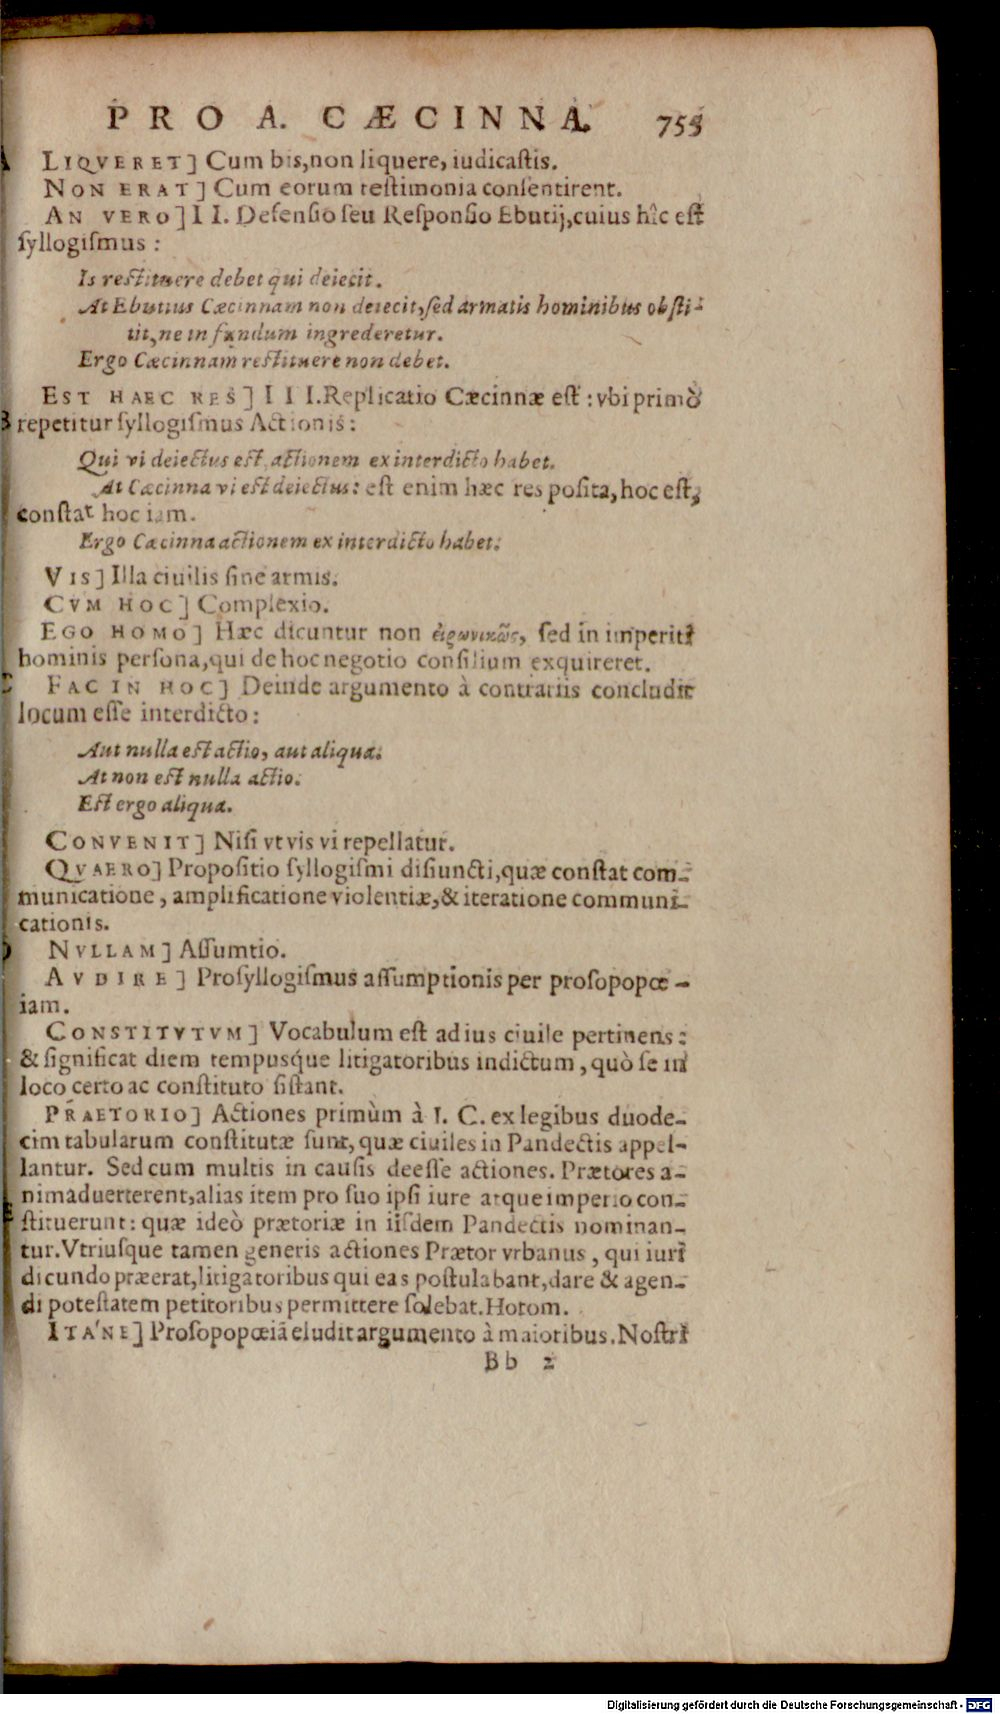 PRO A. CÆCINNA. 755
A LIQVERET] Cum bis, non liquere, iudicastis.
NON ERAT] Cum eorum testimonia consentirent.
AN VERO] II. Defensio seu Responsio Ebutij, cuius hîc est
syllogismus:
Is restituere debet qui deiecit.
At Ebutius Cæcinnam non deiecit, sed armatis hominibus obsti-
tit, ne in fundum ingrederetur.
Ergo Cæcinnam restituere non debet.
EST HAEC RES] III. Replicatio Cæcinnæ est: vbi primò
B repetitur syllogismus Actionis:
Qui vi deiectus est, actionem ex interdicto habet.
At Cæcinna vi est deiectus: est enim hæc res posita, hoc est,
constat hoc iam.
Ergo Cæcinna actionem ex interdicto habet.
VIS] Illa ciuilis sine armis.
CVM HOC] Complexio.
EGO HOMO] Hæc dicuntur non εἰρωνικῶς, sed in imperiti
hominis persona, qui de hoc negotio consilium exquireret.
C FAC IN HOC] Deinde argumento à contrariis concludit
locum esse interdicto:
Aut nulla est actio, aut aliqua.
At non est nulla actio.
Est ergo aliqua.
CONVENIT] Nisi vt vis vi repellatur.
QVAERO] Propositio syllogismi disiuncti, quæ constat com-
municatione, amplificatione violentiæ, & iteratione communi-
cationis.
D NVLLAM] Assumtio.
AVDIRE] Prosyllogismus assumptionis per prosopopœ-
iam.
CONSTITVTVM] Vocabulum est ad ius ciuile pertinens:
& significat diem tempusque litigatoribus indictum, quò se in
loco certo ac constituto sistant.
PRAETORIO] Actiones primùm à I. C. ex legibus duode-
cim tabularum constitutæ sunt, quæ ciuiles in Pandectis appel-
lantur. Sed cum multis in causis deesse actiones. Prætores a-
nimaduerterent, alias item pro suo ipsi iure atque imperio con-
E stituerunt: quæ ideò prætoriæ in iisdem Pandectis nominan-
tur. Vtriusque tamen generis actiones Prætor vrbanus, qui iuri
dicundo præerat, litigatoribus qui eas postulabant, dare & agen-
di potestatem petitoribus permittere solebat. Hotom.
ITA'NE] Prosopopœiã eludit argumento à maioribus. Nostri
Bb 2
Digitalisierung gefördert durch die Deutsche Forschungsgemeinschaft - DFG